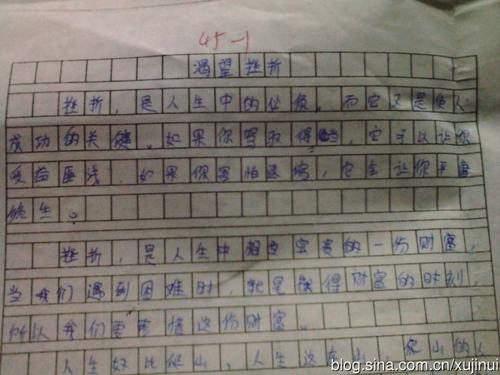 45-1
渴望挫折
挫折，是人生中的 。而它又是使人
成功的关键。如果你 取得 ，它可以让你
受益匪浅；如果你害怕 ，它会让你
终生。
挫折，是人生中相当宝贵的一份财富，
当我们遇到困难时，就是获得财富的时刻，
所以我们要珍惜这份财富。
人生好比爬山，人生 山，爬山的人
blog.sina.com.cn/xujinui